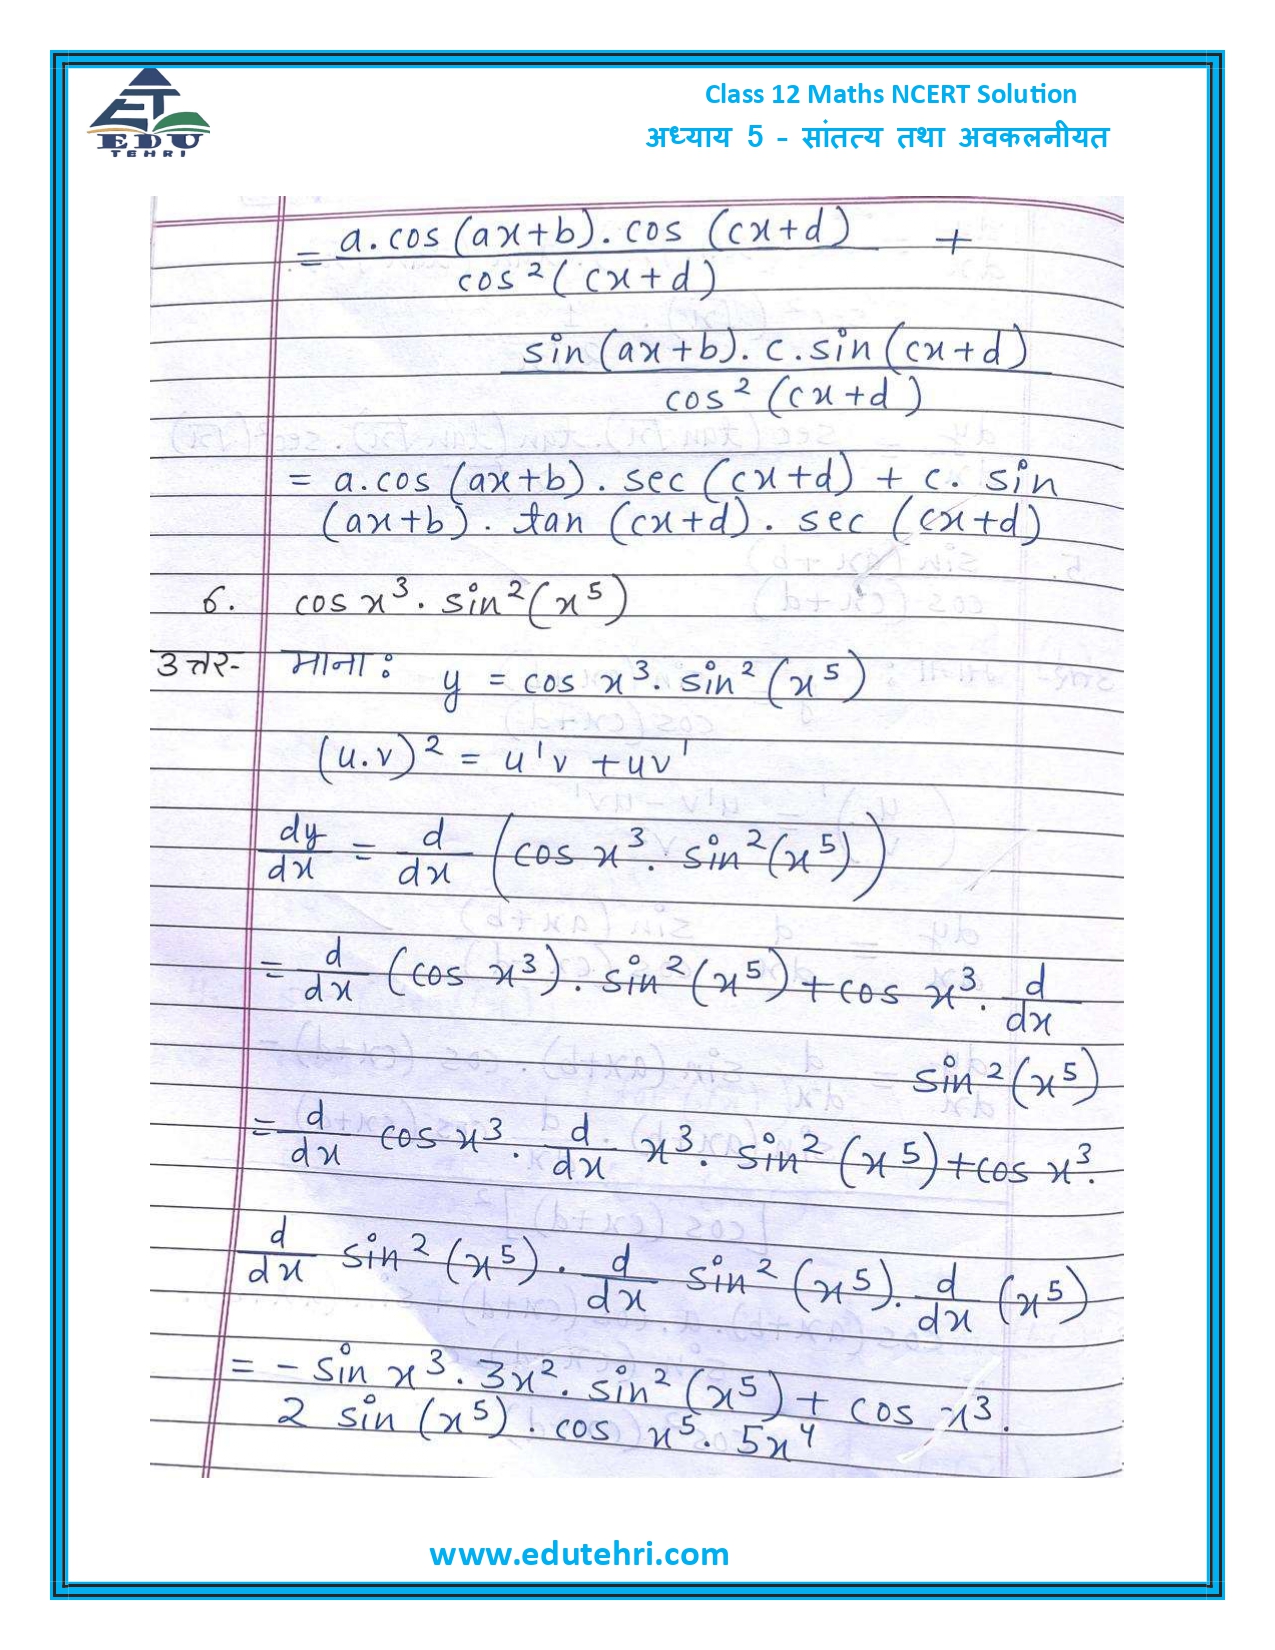 EDU
TEHRI
Class 12 Maths NCERT Solution
अध्याय 5 - सांतत्य तथा अवकलनीयत
= a.cos(ax+b).cos (cx+d) / cos²(cx+d) +
sin(ax+b).c.sin(cx+d) / cos²(cx+d)
= a.cos(ax+b).sec(cx+d) + c. sin
(ax+b). tan (cx+d). sec (cx+d)
6. cos x³. sin²(x⁵)
उत्तर- माना: y = cos x³. sin²(x⁵)
(u.v)² = u'v + uv'
dy/dx = d/dx (cos x³. sin²(x⁵))
= d/dx (cos x³). sin²(x⁵) + cos x³. d/dx
sin²(x⁵)
= d/dx cos x³. d/dx x³. sin²(x⁵) + cos x³.
d/dx sin²(x⁵). d/dx sin²(x⁵). d/dx (x⁵)
= - sin x³. 3x². sin²(x⁵) + cos x³.
2 sin(x⁵). cos x⁵. 5x⁴
www.edutehri.com